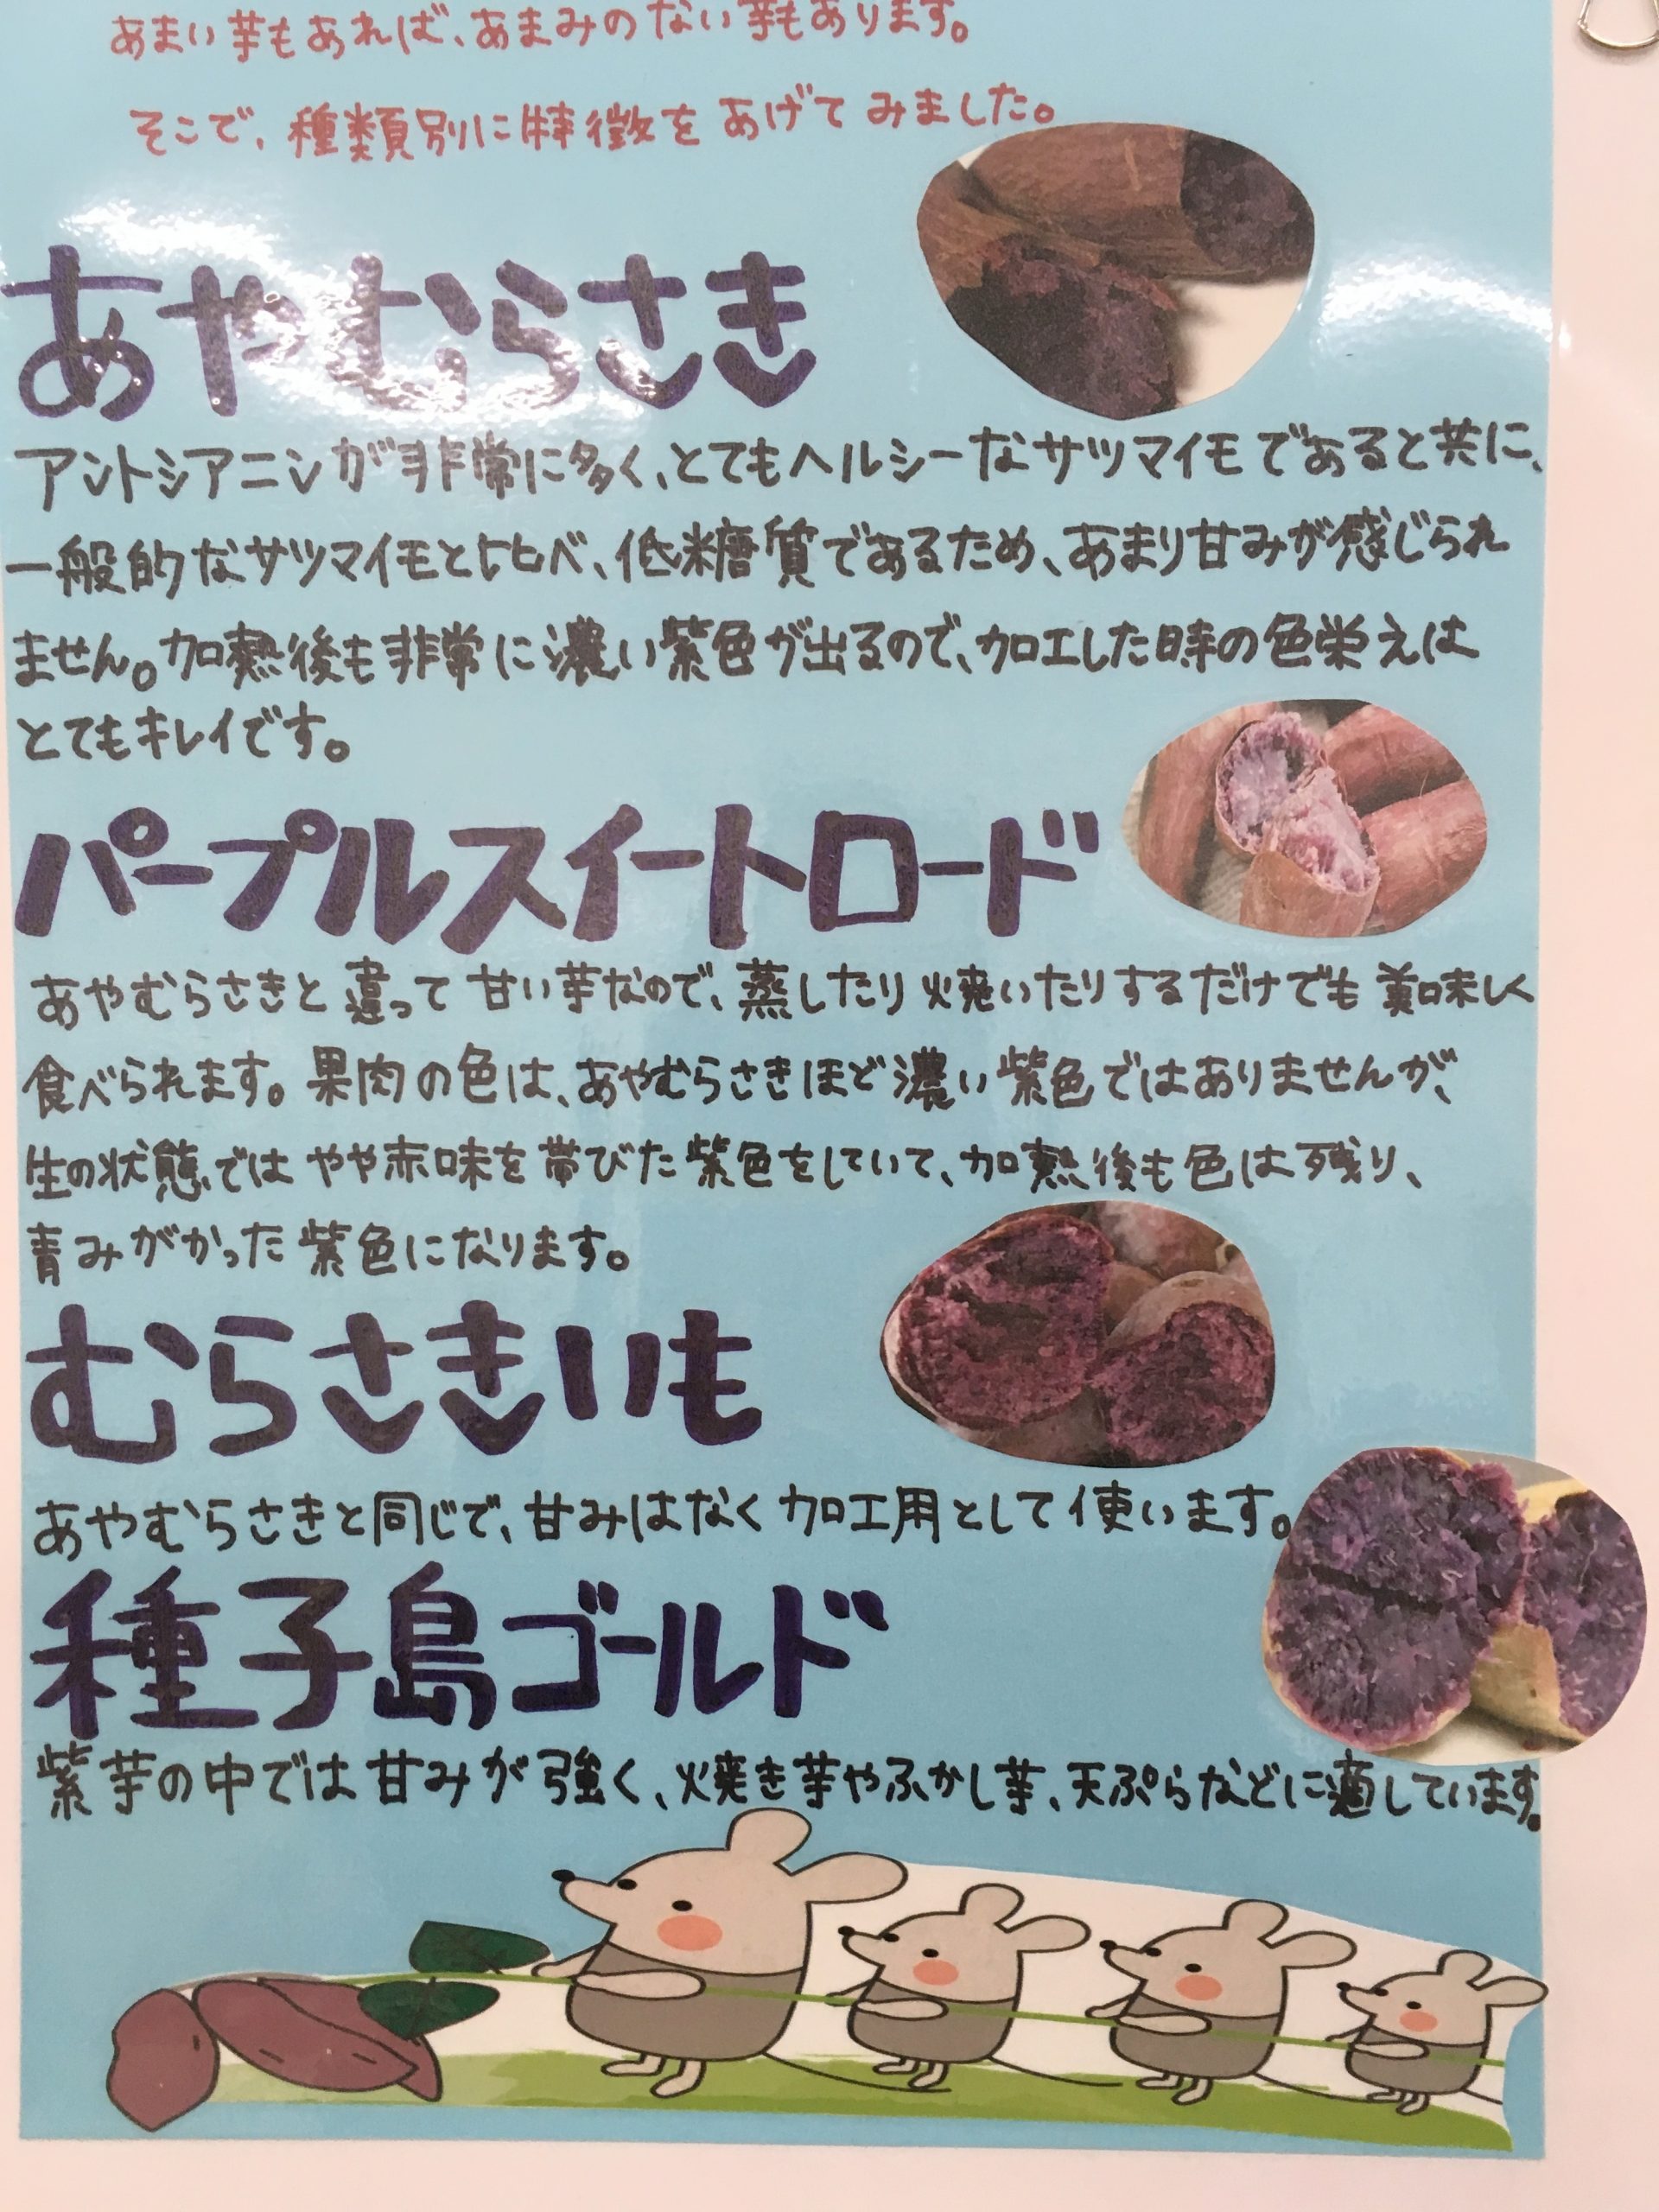 あまい芋もあれば、あまみのない芋もあります。
そこで、種類別に特徴をあげてみました。
あやむらさき
アントシアニンが非常に多く、とてもヘルシーなサツマイモであると共に、
一般的なサツマイモと比べ、低糖質であるため、あまり甘みが感じられ
ません。加熱後も非常に濃い紫色が出るので、加工した時の色栄えは
とてもキレイです。
パープルスイートロード
あやむらさきと違って甘い芋なので、蒸したり焼いたりするだけでも美味しく
食べられます。果肉の色は、あやむらさきほど濃い紫色ではありませんが、
生の状態ではやや赤味を帯びた紫色をしていて、加熱後も色は残り、
青みがかった紫色になります。
むらさきいも
あやむらさきと同じで、甘みはなく加工用として使います。
種子島ゴールド
紫芋の中では甘みが強く、焼き芋やふかし芋、天ぷらなどに適しています。